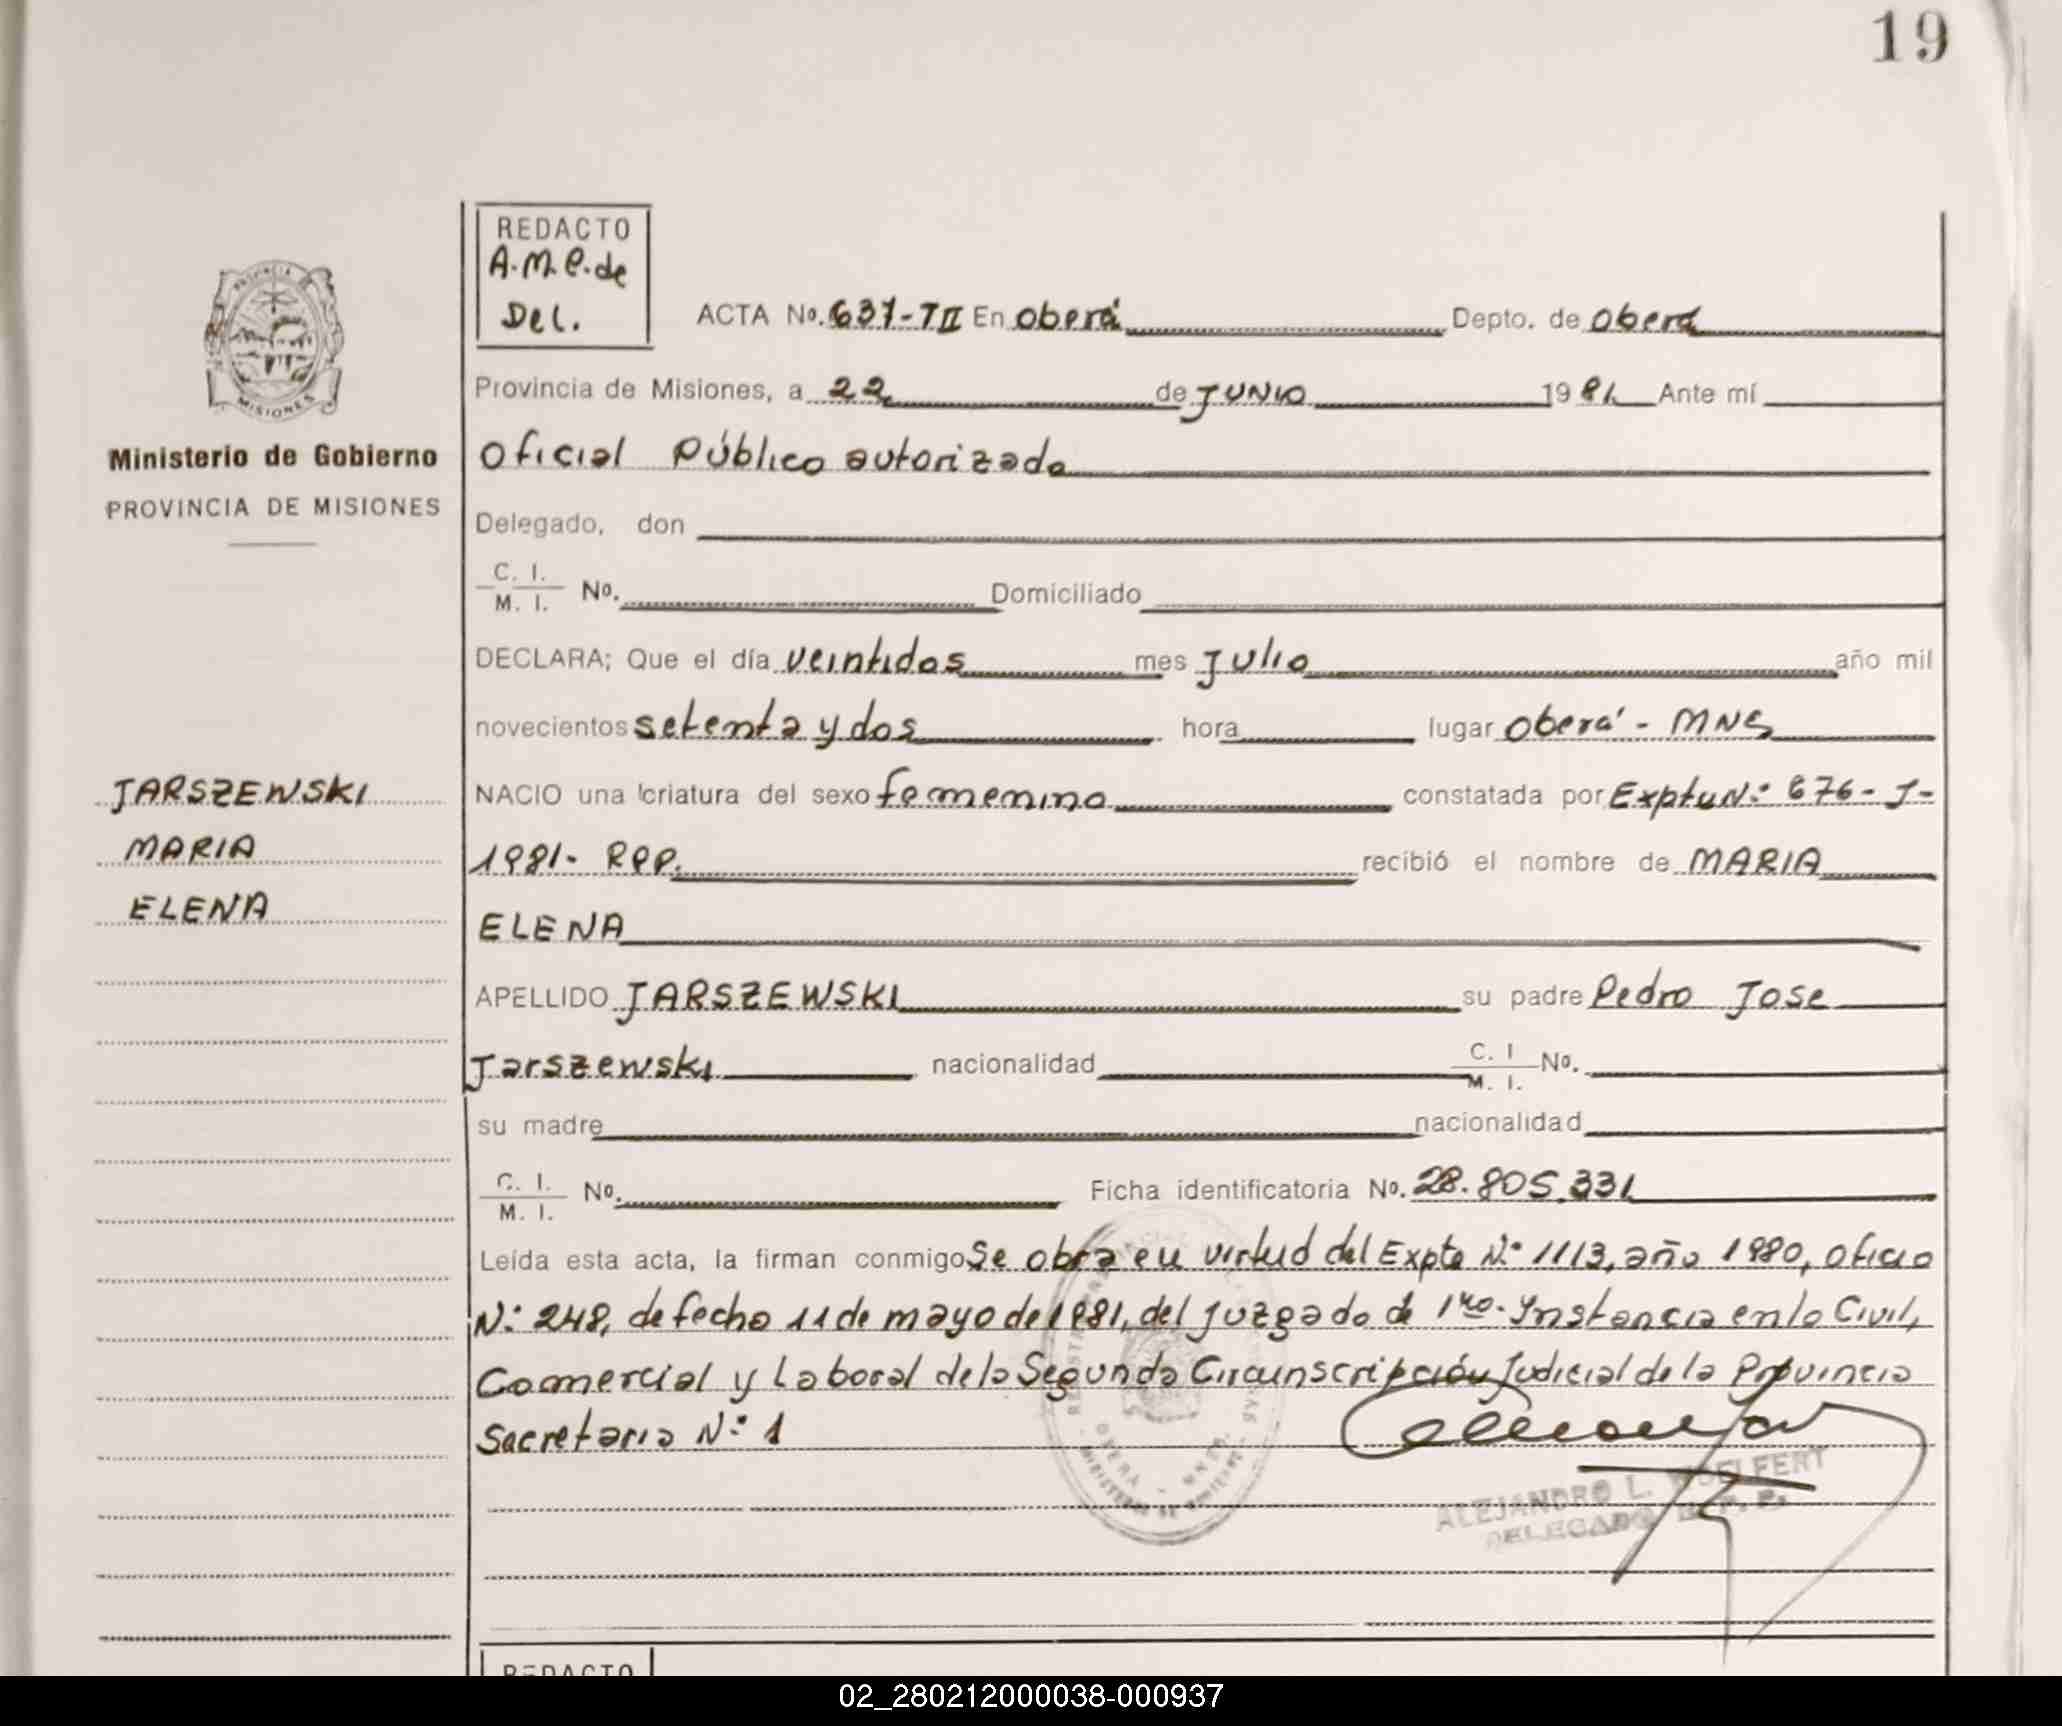 19
REDACTO
A.M.C. de
Del.
ACTA No. 637-TII En Oberá Depto. de Oberá
PROVINCIA
MISIONES
Ministerio de Gobierno
PROVINCIA DE MISIONES
Provincia de Misiones, a 22 de JUNIO 1981 Ante mí
Oficial Público autorizado
Delegado, don
C. I.
M. I. No. Domiciliado
DECLARA; Que el día veintidos mes Julio año mil
novecientos setenta y dos hora lugar Oberá - MNS
JARSZEWSKI
MARIA
ELENA
NACIO una criatura del sexo femenino constatada por Expte N: 676-J-
1981- RPP. recibió el nombre de MARIA
ELENA
APELLIDO JARSZEWSKI su padre Pedro Jose
Jarszewski nacionalidad C. I
M. I. No.
su madre nacionalidad
C. I.
M. I. No. Ficha identificatoria No. 28.805.331
Leída esta acta, la firman conmigo Se obra en virtud del Expte N° 1113, año 1980, oficio
N: 248, de fecha 11 de mayo de 1981, del Juzgado de 1ra. Instancia en lo Civil,
Comercial y Laboral de la Segunda Circunscripción Judicial de la Provincia
Secretaria N° 1
OBERA - MNES.
ALEJANDRO L. WOELFERT
DELEGADO R. P. P.
REDACTO
02_280212000038-000937